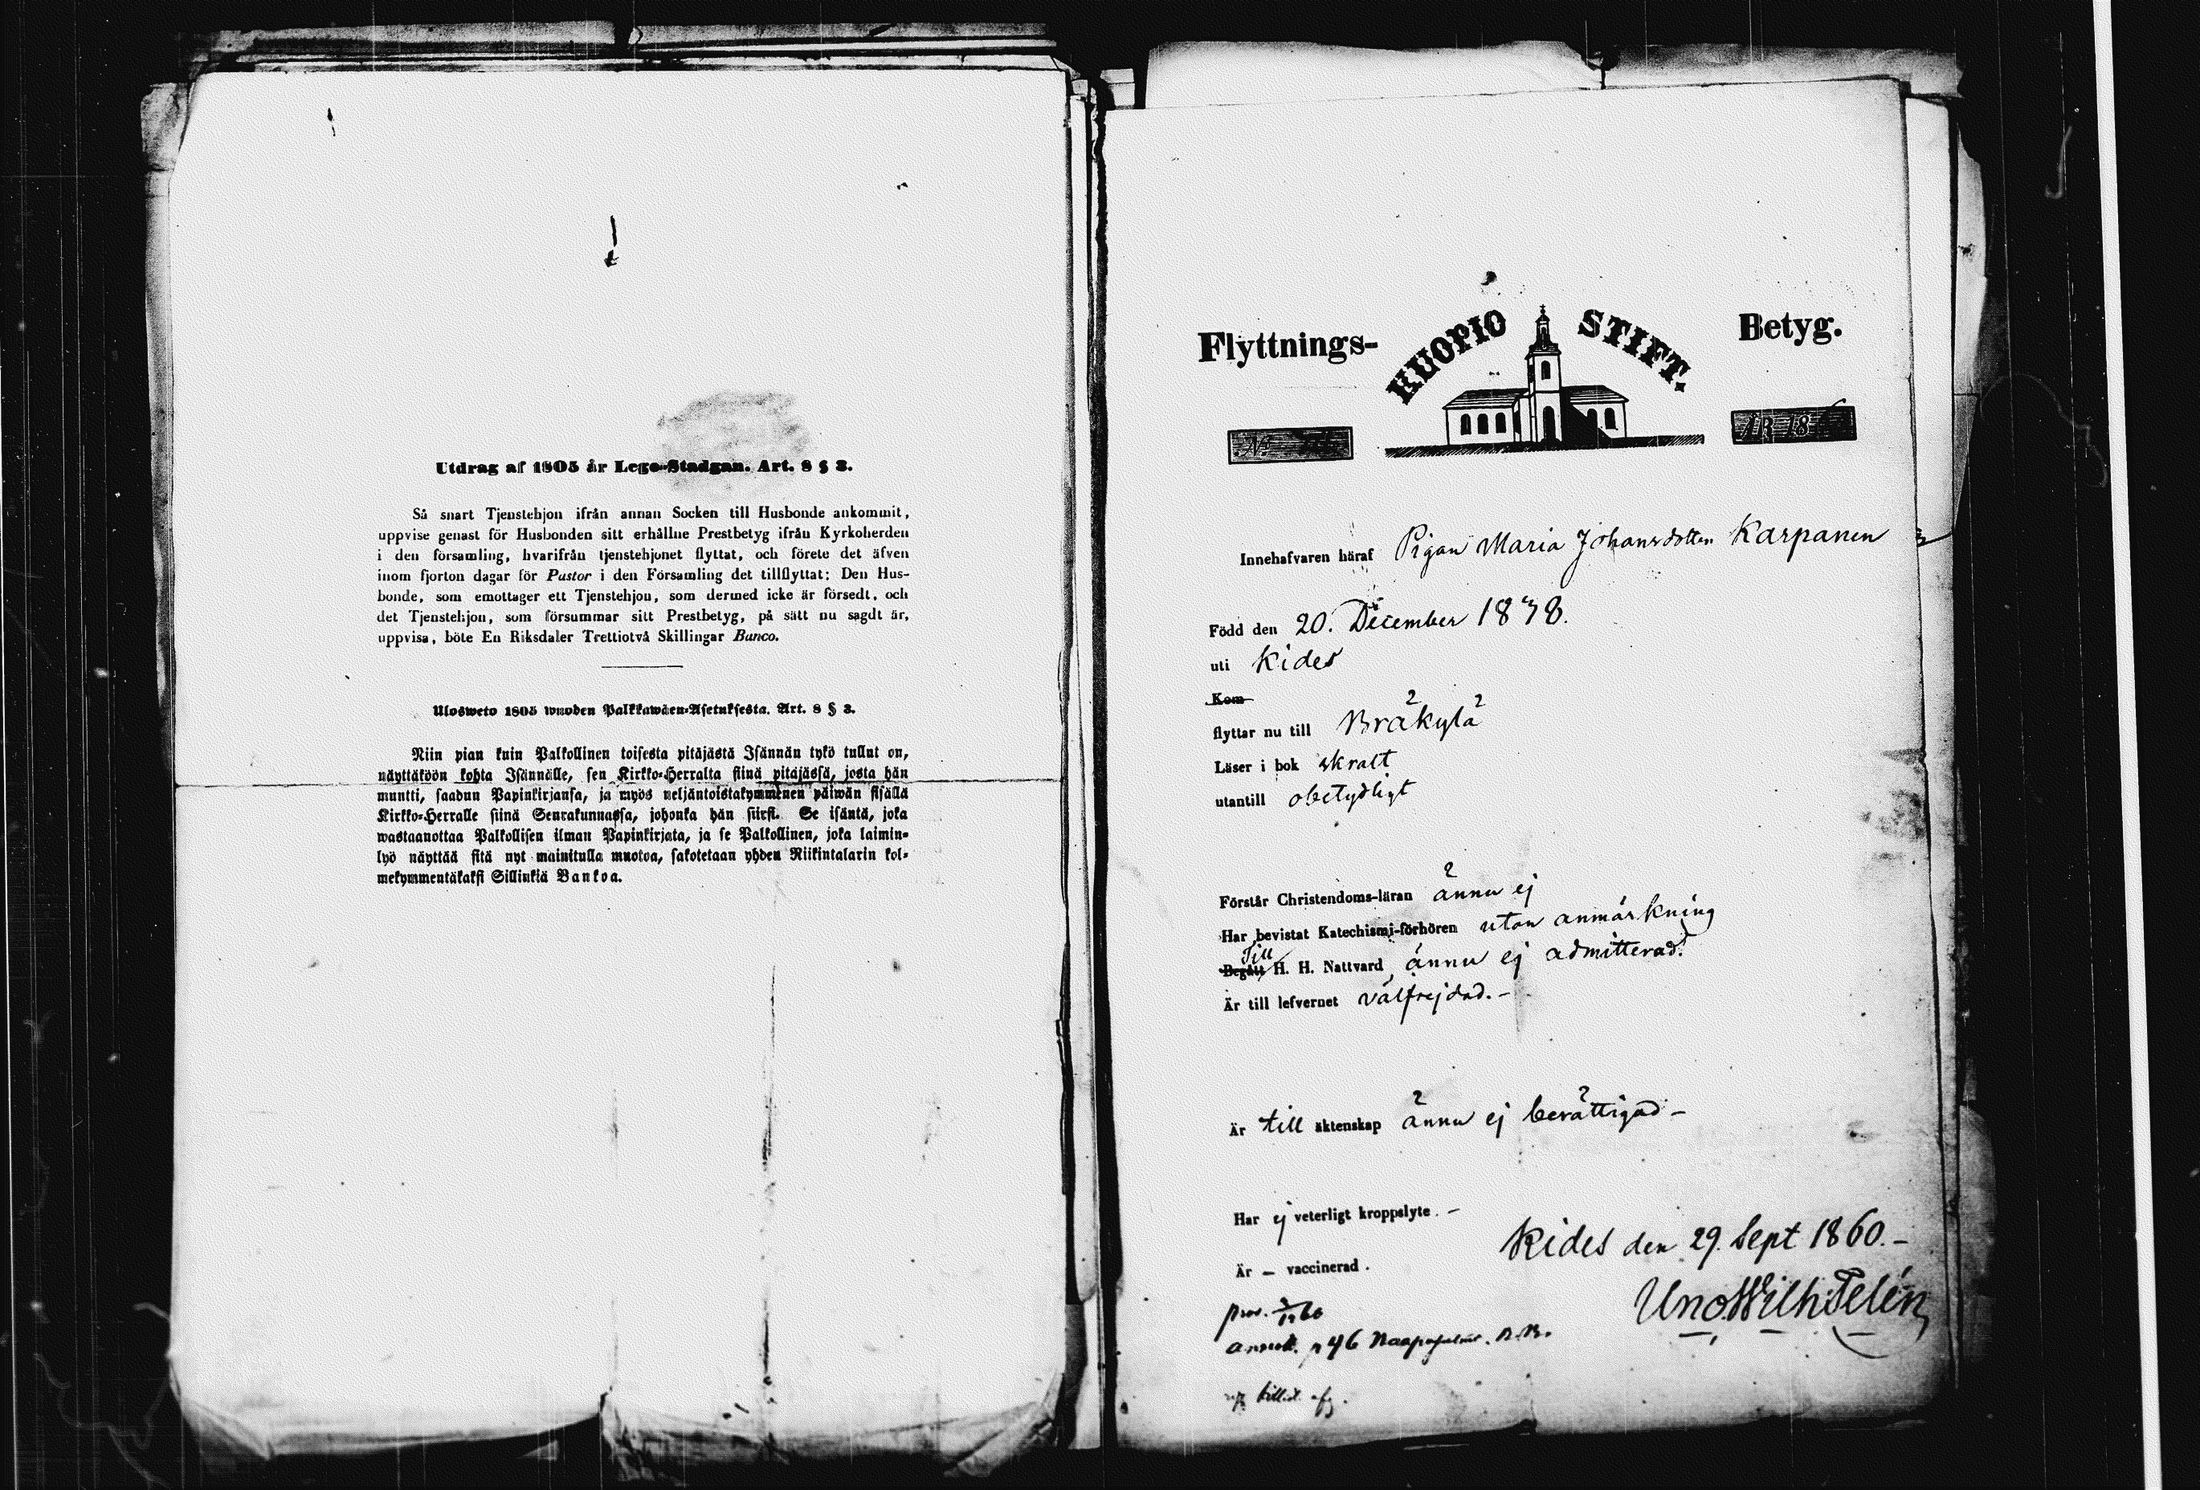 Utdrag af 1805 år Lego-Stadgan. Art. 8 § 3.
Så snart Tjenstehjon ifrån annan Socken till Husbonde ankommit,
uppvise genast för Husbonden sitt erhållne Prestbetyg ifrån Kyrkoherden
i den församling, hvarifrån tjenstehjonet flyttat, och förete det äfven
inom fjorton dagar för Pastor i den Församling det tillflyttat: Den Hus-
bonde, som emottager ett Tjenstehjon, som dermed icke är försedt, och
det Tjenstehjon, som försummar sitt Prestbetyg, på sätt nu sagdt är,
uppvisa, böte En Riksdaler Trettiotvå Skillingar Banco.
Ulosweto 1805 wuoden Palkkawäen-Asetuksesta. Art. 8 § 3.
Niin pian kuin Palkollinen toisesta pitäjästä Isännän tykö tullut on,
näyttäköön kohta Isännälle, sen Kirkko-Herralta siinä pitäjässä, josta hän
muutti, saadun Papinkirjansa, ja myös neljäntoistakymmenen päiwän sisällä
Kirkko-Herralle siinä Seurakunnassa, johonka hän siirsi. Se isäntä, joka
wastaanottaa Palkollisen ilman Papinkirjata, ja se Palkollinen, joka laimin-
lyö näyttää sitä nyt mainitulla muotoa, sakotetaan yhden Riikintalarin kol-
mekymmentäkaksi Sillinkiä Bankoa.
Flyttnings- KUOPIO STIFT. Betyg.
No. ÅR 186
Innehafvaren häraf Pigan Maria Johansdotter Karpanen
Född den 20. December 1838.
uti Kides
Kom
flyttar nu till Bräkylä
Läser i bok skralt
utantill obetydligt
Förstår Christendoms-läran ännu ej
Har bevistat Katechismi-förhören utan anmärkning
Till
Begått H. H. Nattvard ännu ej admitterad.
Är till lefvernet välfrejdad.-
Är till äktenskap ännu ej berättigad-
Har ej veterligt kroppslyte.-
Kides den 29. Sept 1860.-
Är - vaccinerad.
Uno Wilh Telén
p 46